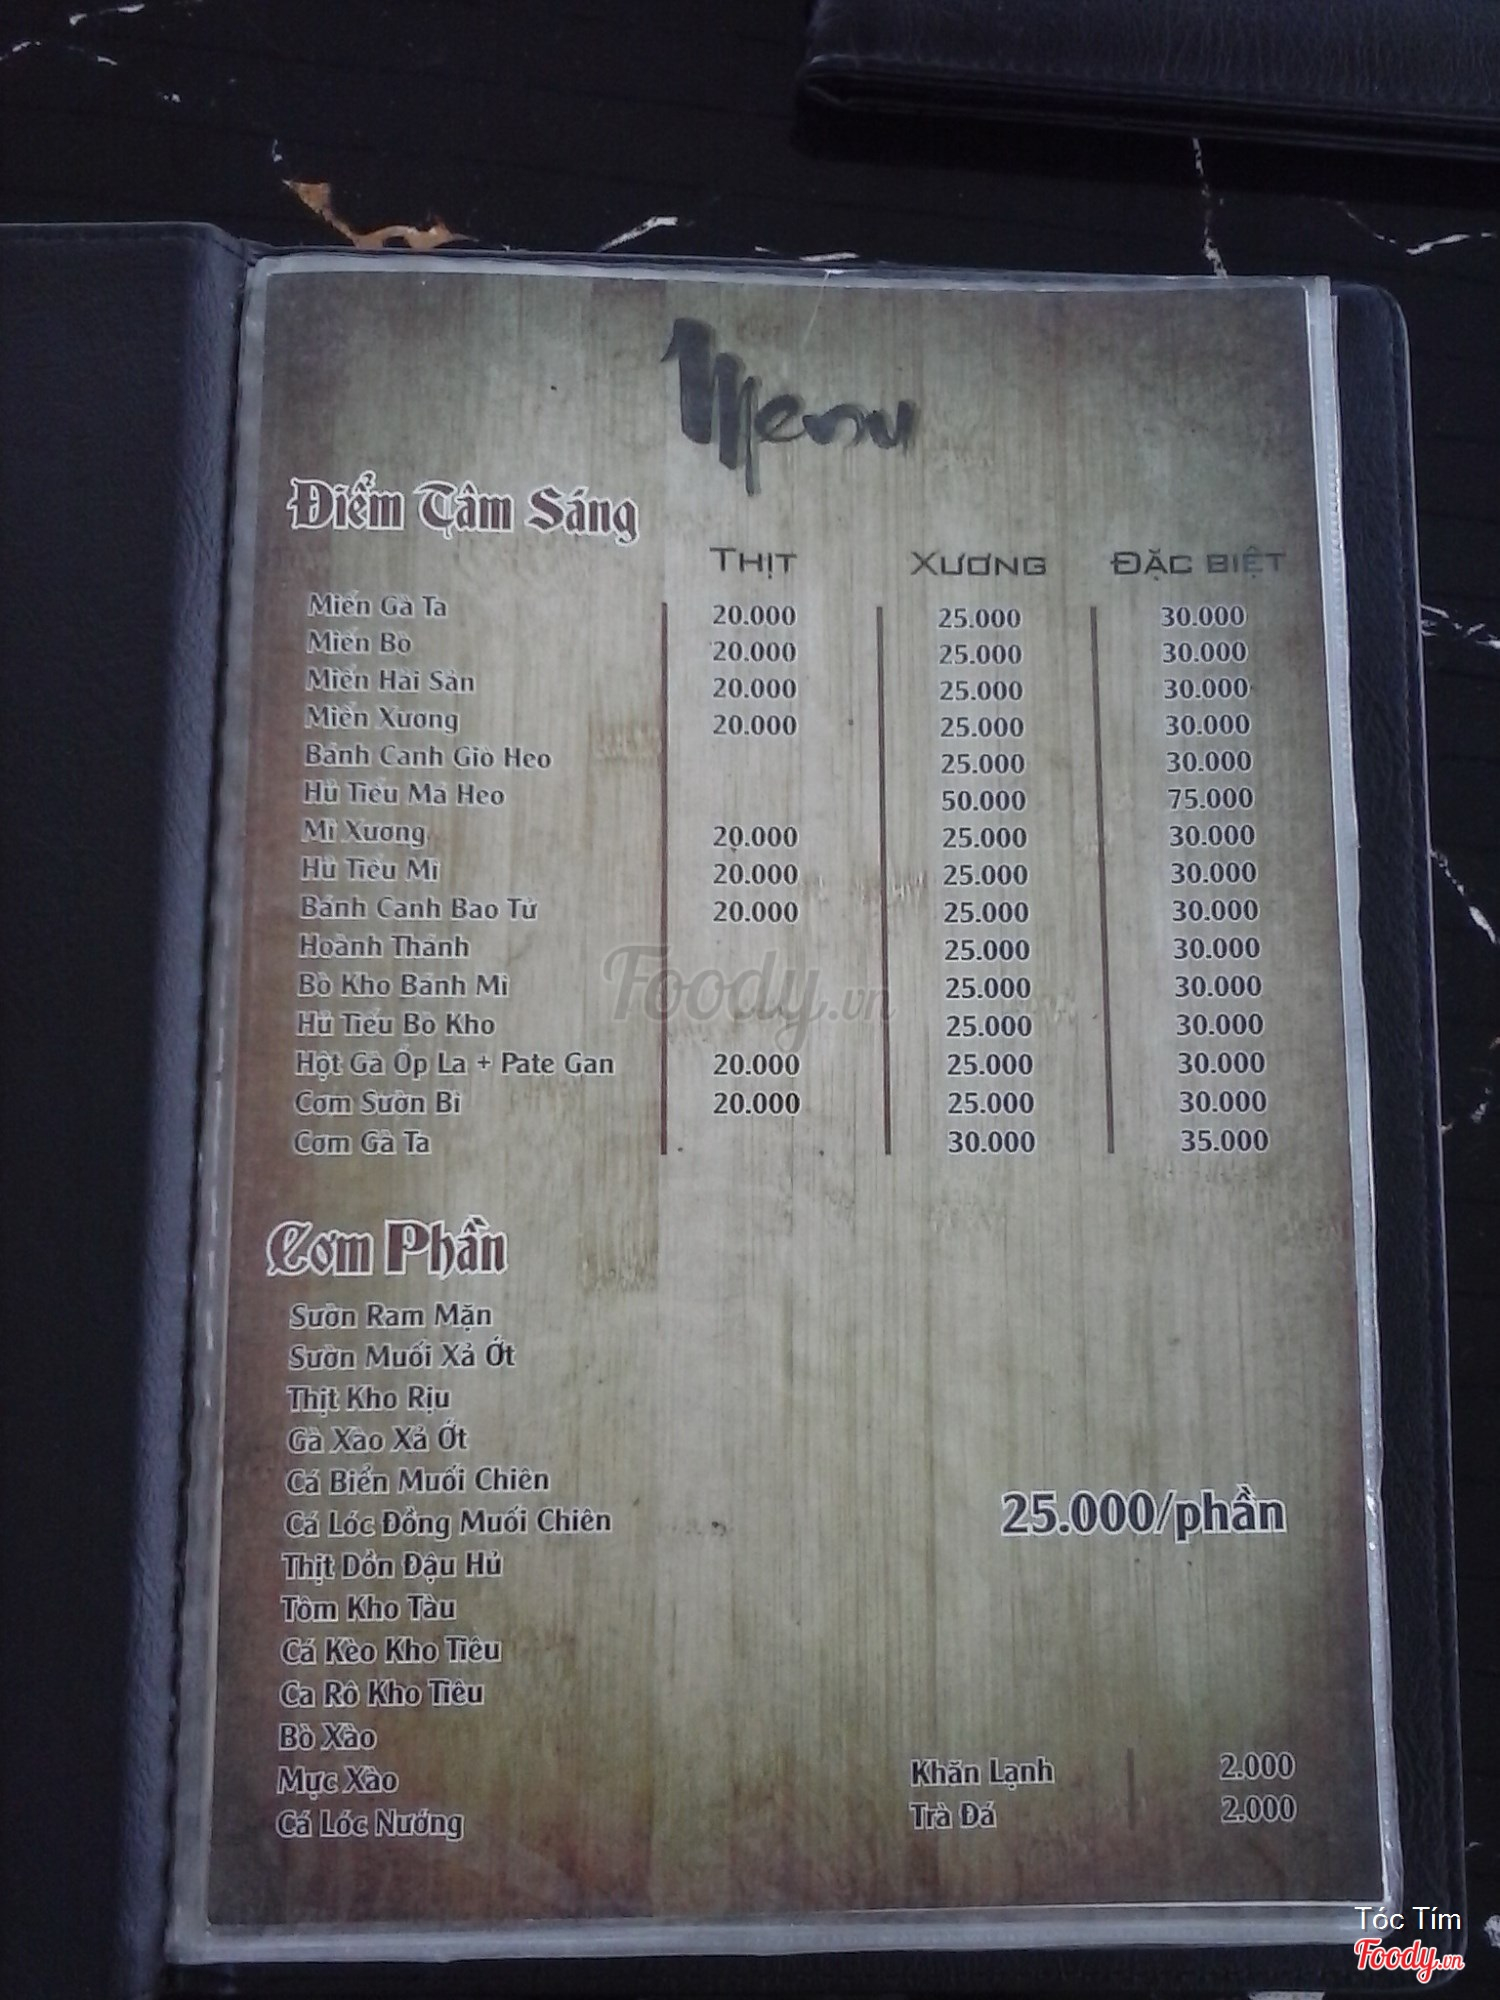 Menu
Điểm Tâm Sáng
Thịt Xương Đặc biệt
Miến Gà Ta 20.000 25.000 30.000
Miến Bò 20.000 25.000 30.000
Miến Hải Sản 20.000 25.000 30.000
Miến Xương 20.000 25.000 30.000
Bánh Canh Giò Heo 25.000 30.000
Hủ Tiếu Má Heo 50.000 75.000
Mì Xương 20.000 25.000 30.000
Hủ Tiếu Mì 20.000 25.000 30.000
Bánh Canh Bao Tử 20.000 25.000 30.000
Hoành Thánh 25.000 30.000
Bò Kho Bánh Mì 25.000 30.000
Hủ Tiếu Bò Kho 25.000 30.000
Hột Gà Ốp La + Pate Gan 20.000 25.000 30.000
Cơm Sườn Bì 20.000 25.000 30.000
Cơm Gà Ta 30.000 35.000
Foody.vn
Cơm Phần
Sườn Ram Mặn
Sườn Muối Xả Ớt
Thịt Kho Rịu
Gà Xào Xả Ớt
Cá Biển Muối Chiên
Cá Lóc Đồng Muối Chiên
Thịt Dồn Đậu Hủ
Tôm Kho Tàu
Cá Kèo Kho Tiêu
Ca Rô Kho Tiêu
Bò Xào
Mực Xào
Cá Lóc Nướng
25.000/phần
Khăn Lạnh 2.000
Trà Đá 2.000
Tóc Tím
Foody.vn